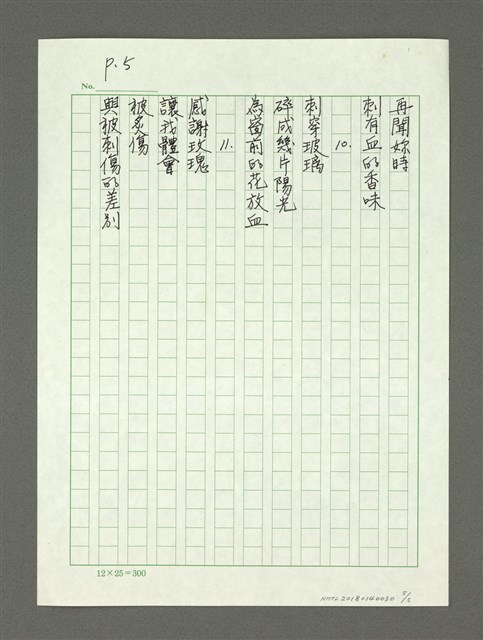 P.5
No.
再聞妳時
刺有血的香味
10.
刺穿玻璃
碎成幾片陽光
為窗前的花放血
11.
感謝玫瑰
讓我體會
被炙傷
與被刺傷的差別
12×25=300
NMTL20180140030 5/5